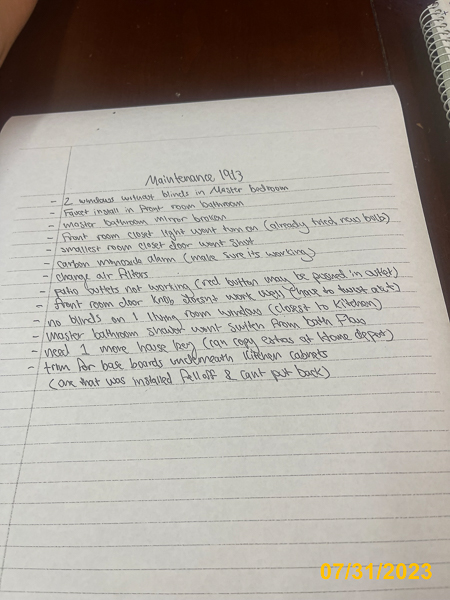 Maintenance 1913
- 2 windows without blinds in Master bedroom
- Faucet install in Front room bathroom
- Master bathroom mirror broken
- Front room closet light wont turn on (already tried new bulb)
- smallest room closet door wont shut
- carbon monoxide alarm (make sure its working)
- change air filters
- patio outlets not working (red button may be pushed in outlet)
- front room door knob doesnt work well (have to twist alot)
- no blinds on 1 living room window (closest to kitchen)
- Master bathroom shower wont switch from bath
- need 1 more house key (can copy extras at Home depot)
- trim for base boards underneath kitchen cabinets
(one that was installed fell off & cant put back)
07/31/2023